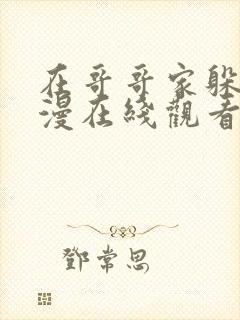 在哥哥家躲
漫在线觀看
鄧常思